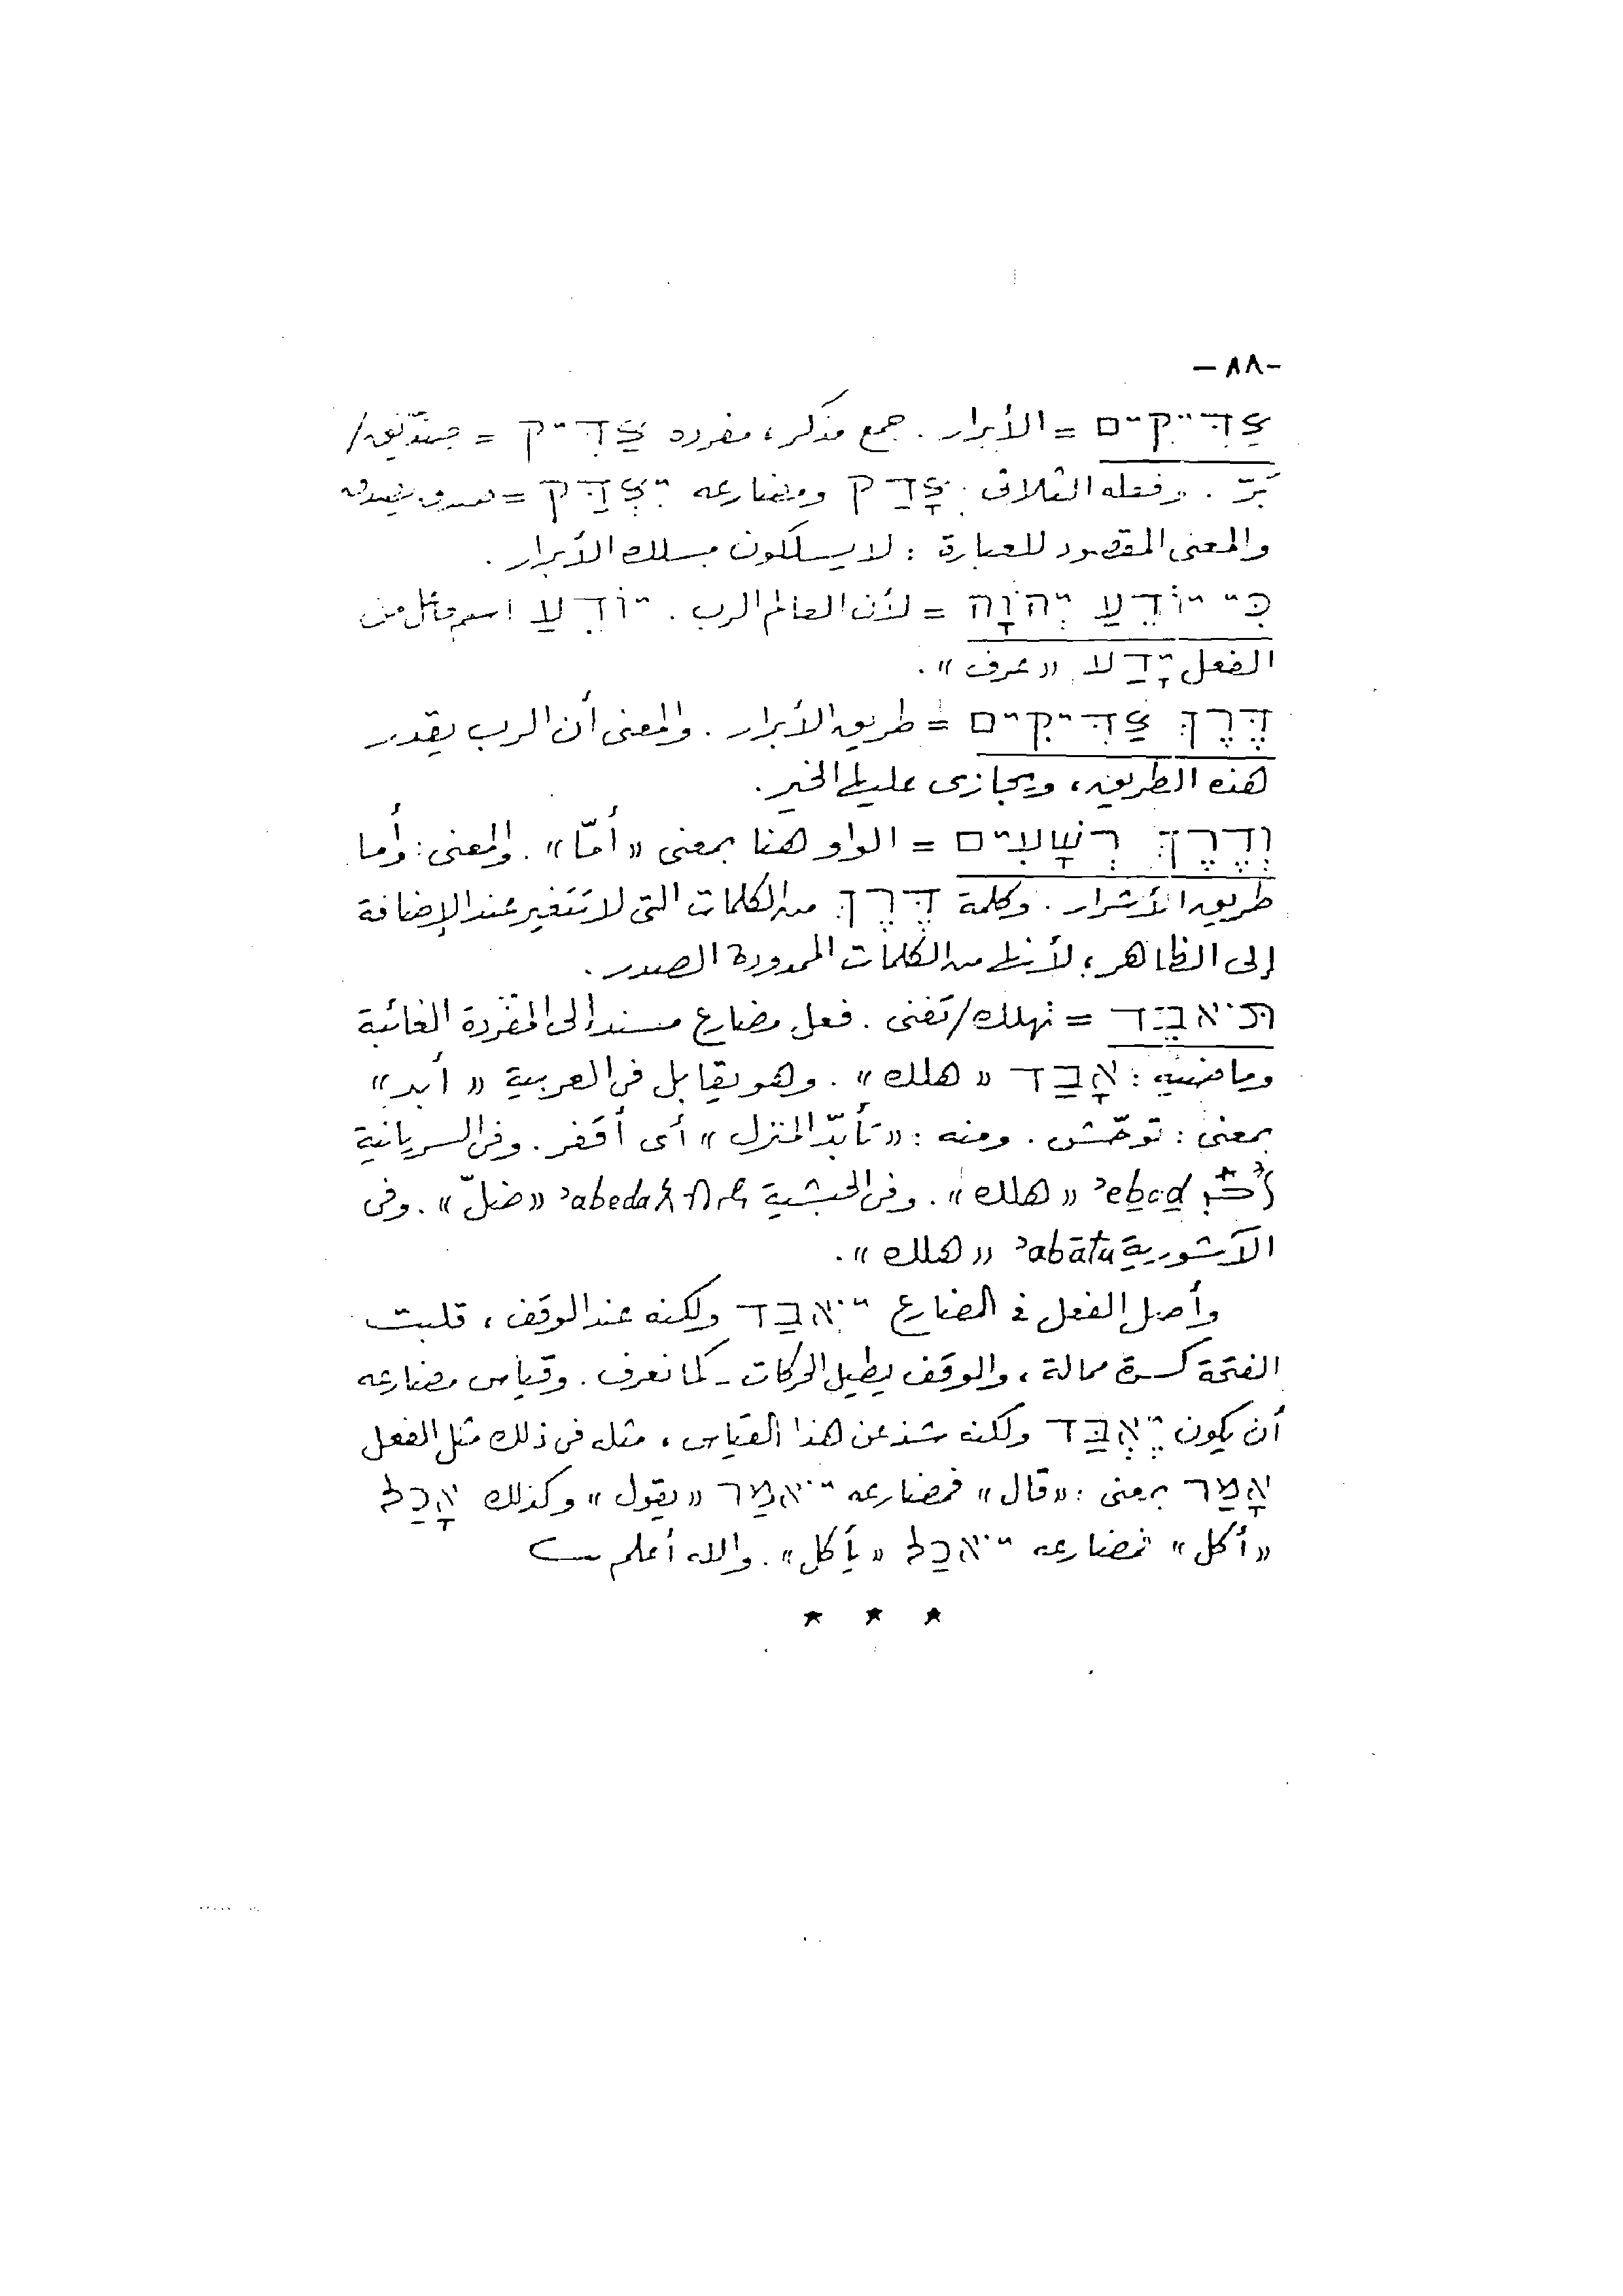 -٨٨-
צַדִּיקִים = الأبرار. جمع مذكر، مفرده צַדִּיק = صِدّيق/
بَرّ. وفعله الثلاثى צָדַק ومضارعه יִצְדַּק = صدق يصدق
والمعنى المقصود للعبارة : لا يسلكون مسلك الأبرار.
כִּי יוֹדֵעַ יְהֹוָה = لأن العالم الرب. יוֹדֵעַ اسم فاعل من
الفعل יָדַע «عرف».
דֶּרֶךְ צַדִּיקִים = طريق الأبرار. والمعنى أن الرب يقدر
هذه الطريق، ويجازى عليها الخير.
וְדֶרֶךְ רְשָׁעִים = الواو هنا بمعنى «أمّا». والمعنى: وأما
طريق الأشرار. وكلمة דֶּרֶךְ من الكلمات التى لا تتغير عند الإضافة
إلى الظاهر؛ لأنها من الكلمات الممدودة الصدر.
תֹּאבֵד = تهلك/تفنى. فعل مضارع مسند إلى المفردة الغائبة
وماضيه : אָבַד «هلك». وهو يقابل فى العربية «أبد»
بمعنى : توحّش. ومنه : «تأبّد المنزل» أى أقفر. وفى السريانية
ʾebad «هلك». وفى الحبشية ʾabeda «ضلّ». وفى
الآشورية ʾabātu «هلك».
وأصل الفعل فى المضارع יֹאבַד ولكنه عند الوقف، قلبت
الفتحة كسرة ممالة، والوقف يطيل الحركات - كما نعرف. وقياس مضارعه
أن يكون יֶאֱבַד ولكنه شذ عن هذا القياس، مثله فى ذلك مثل الفعل
אָמַר بمعنى : «قال» فمضارعه יֹאמַר «يقول» وكذلك אָכַל
«أكل» فمضارعه יֹאכַל «يأكل». والله أعلم
* * *